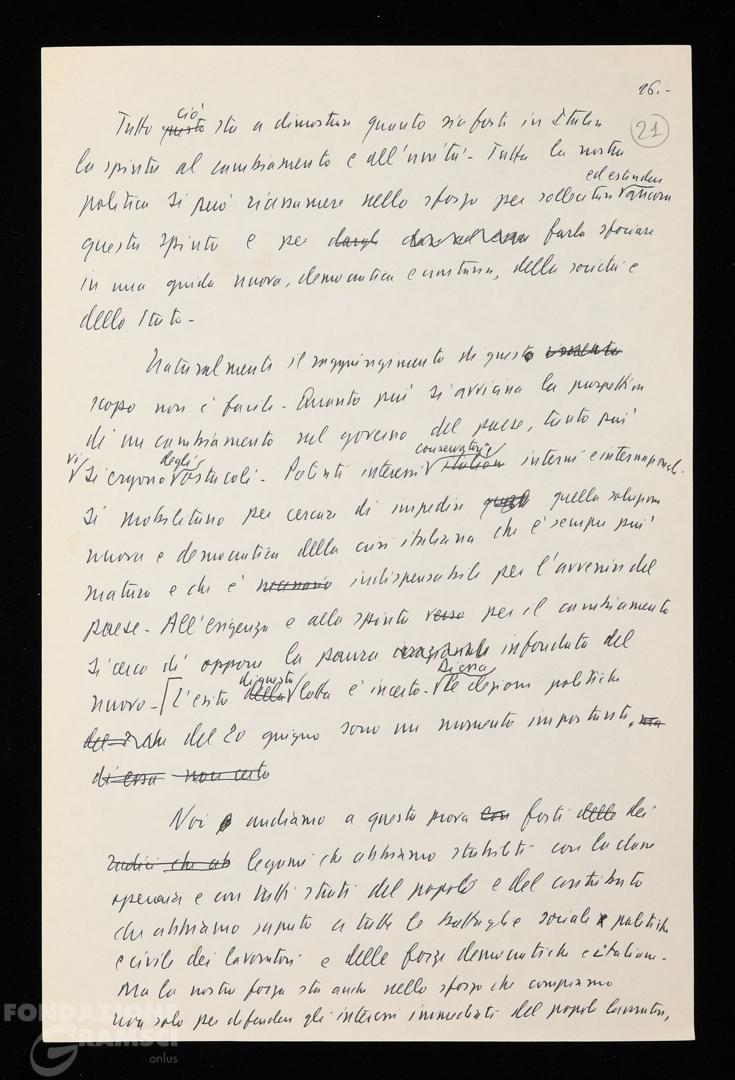 26.-
21
Tutto questo ciò sta a dimostrare quanto sia forte in Italia
la spinta al cambiamento e all'unità. Tutta la nostra
politica si può riassumere nello sforzo per sollecitare ed estendere ancora
questa spinta e per farla sfociare
in una guida nuova, democratica e unitaria, della società e
dello Stato -
Naturalmente il raggiungimento di questo
scopo non è facile. Quanto più si avvicina la prospettiva
di un cambiamento nel governo del paese, tanto più
vi si ergono degli ostacoli. Potenti interessi conservatori italiani interni e internazionali
si mobilitano per cercare di impedire quella soluzione
nuova e democratica della crisi italiana che è sempre più
matura e che è necessaria indispensabile per l'avvenire del
paese. All'esigenza e alla spinta verso per il cambiamento
si cerca di opporre la paura irrazionale infondata del
nuovo. [L'esito della di questa lotta è incerto. Di essa le elezioni politiche
del 20 giugno sono un momento importante, ma
di essa non certo
Noi andiamo a questa prova con forti delle dei
radici che ab legami che abbiamo stabiliti con la classe
operaia e con tutti strati del popolo e del contributo
che abbiamo saputo a tutte le battaglie sociali politiche
e civile dei lavoratori e delle forze democratiche italiane.
Ma la nostra forza sta anche nello sforzo che compiamo
non solo per difendere gli interessi immediati del popolo lavoratore,
FONDAZIONE
GRAMSCI
onlus